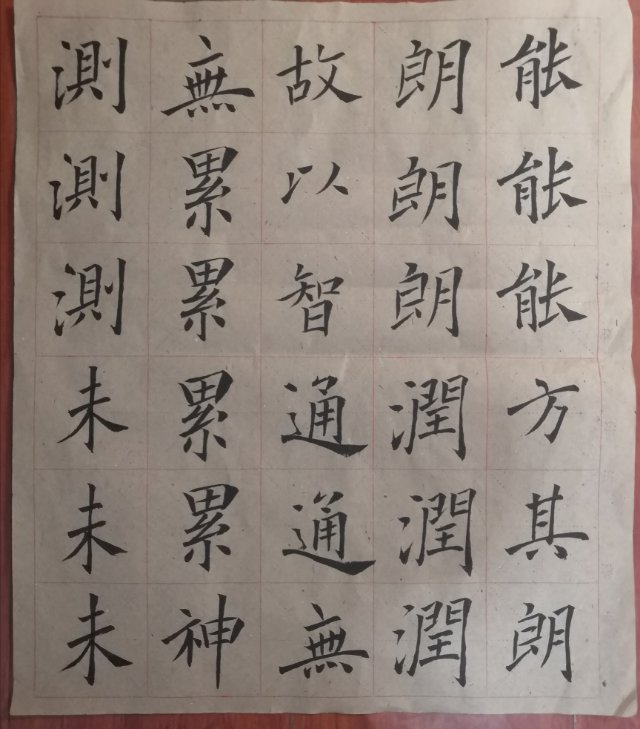 能能能方其朗
朗朗朗潤潤潤
故以智通通無
無累累累累神
測測測未未未